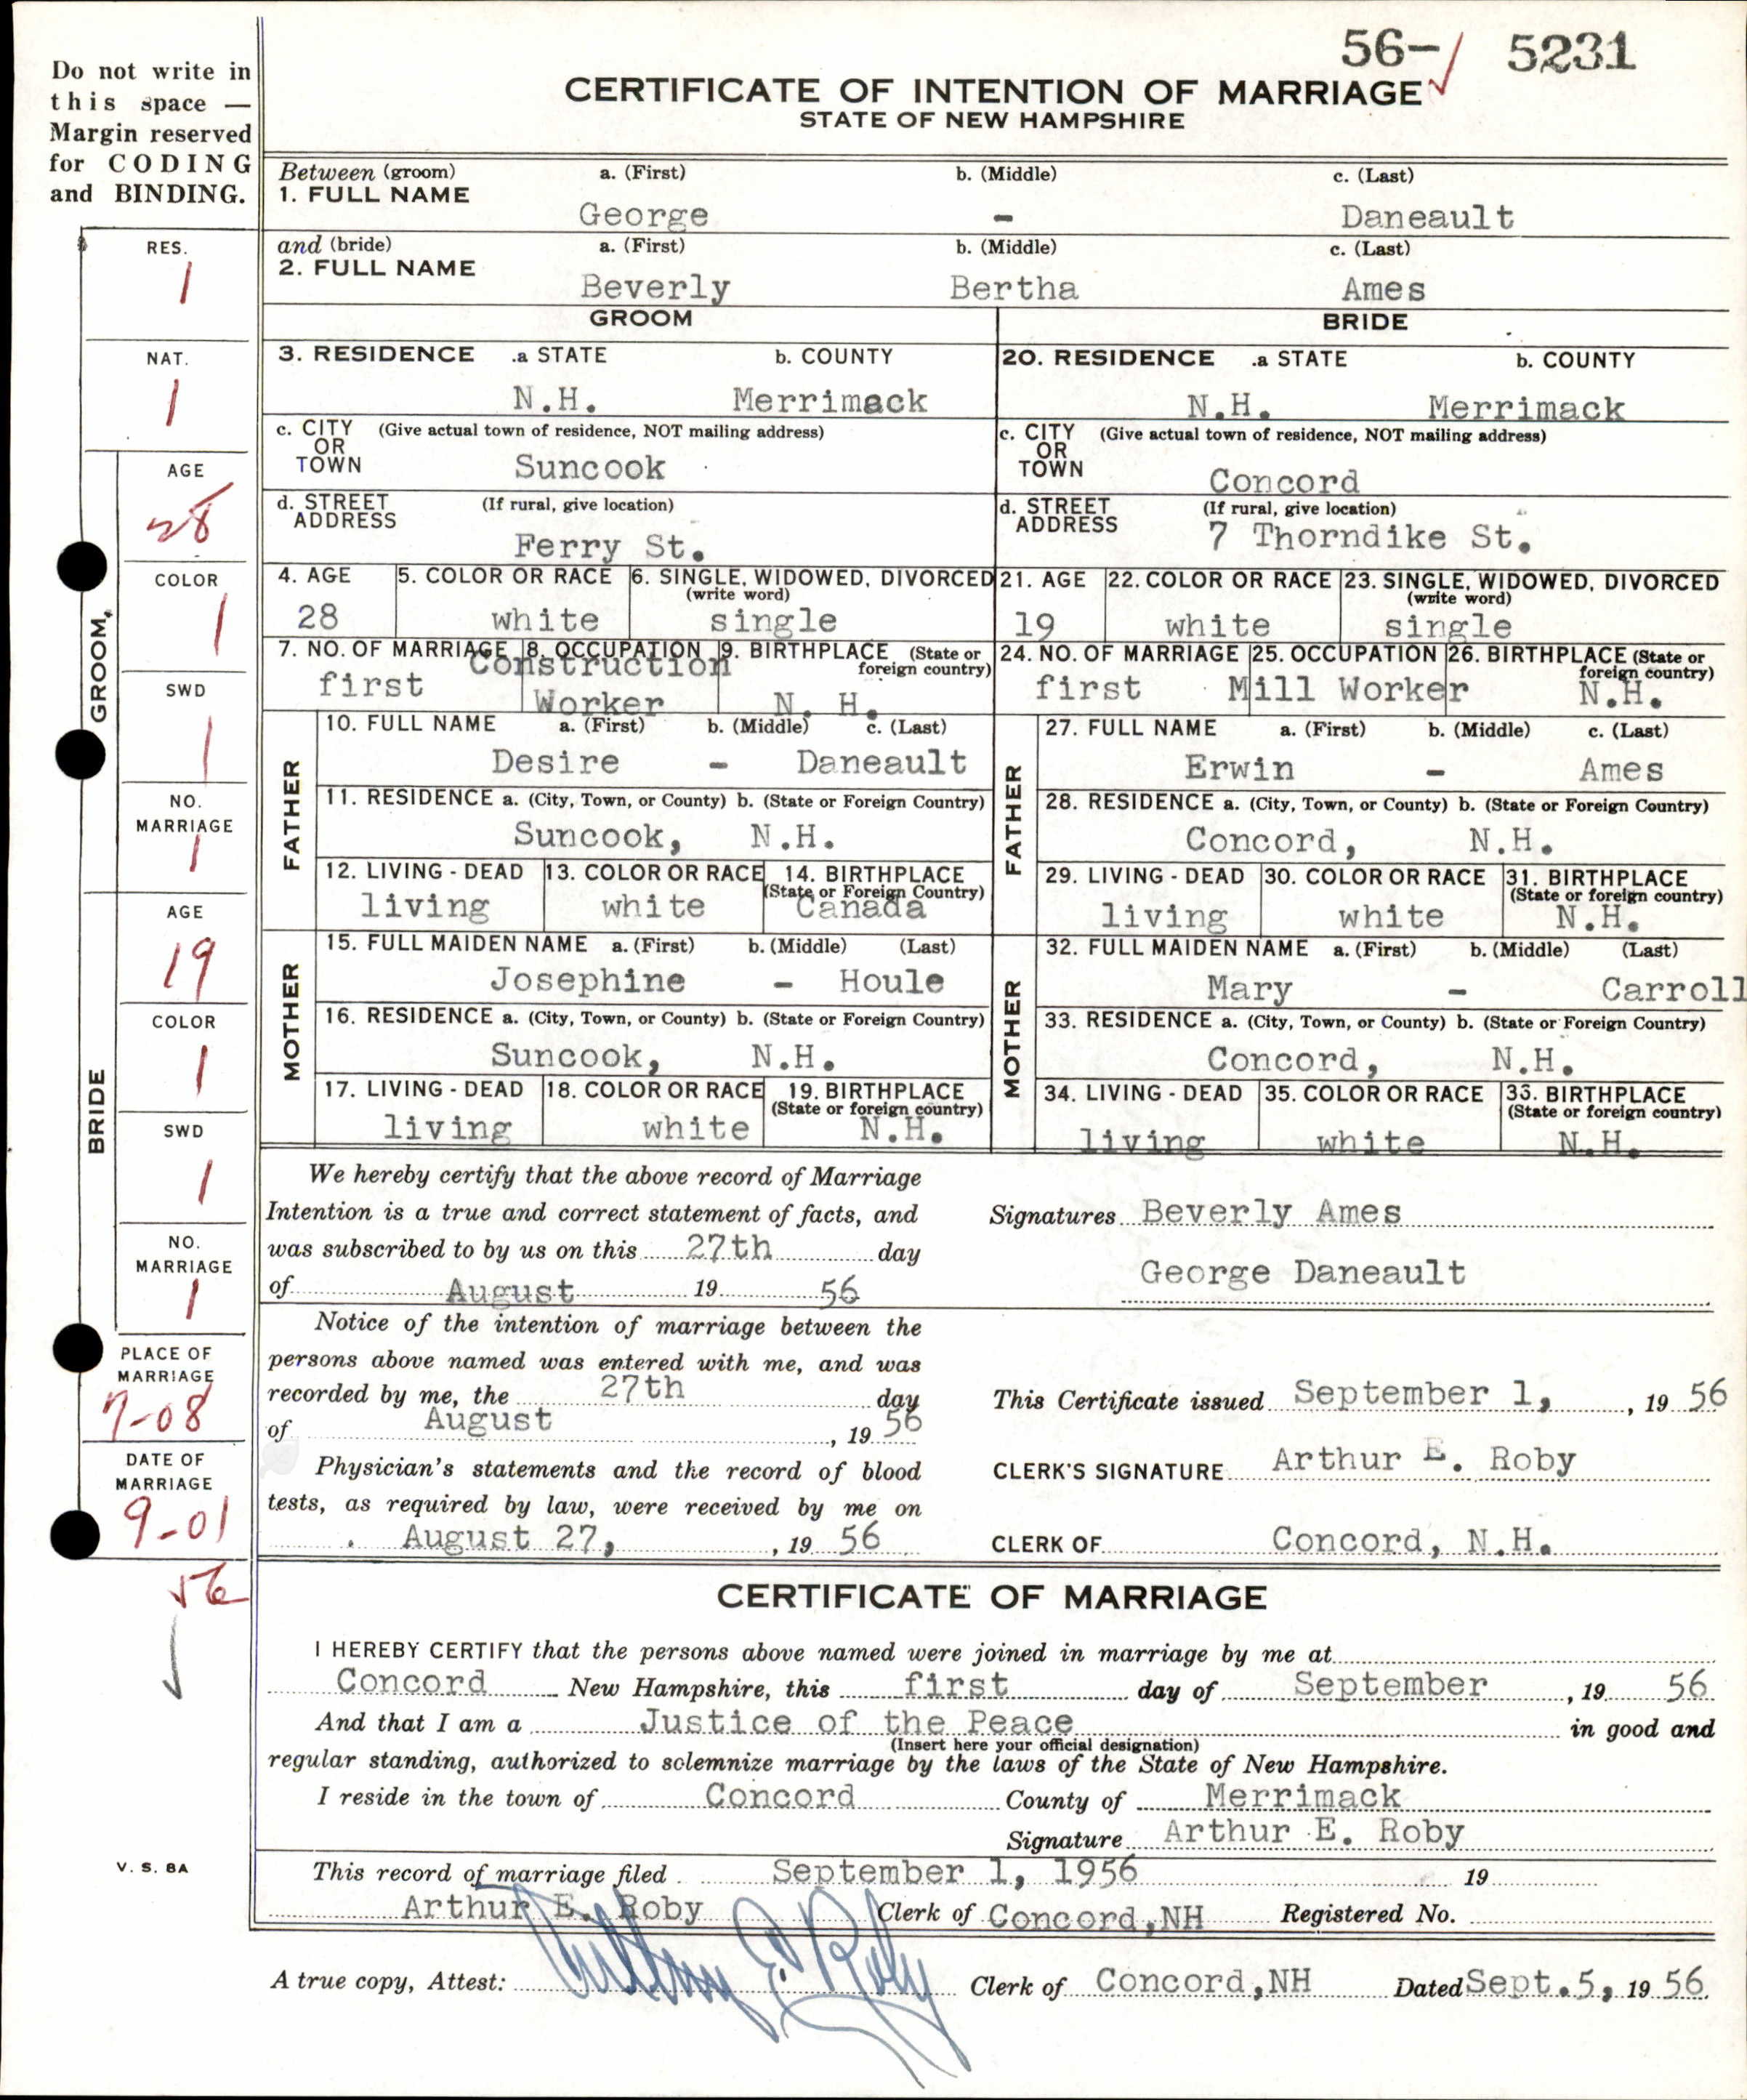 56-✓ 5231
CERTIFICATE OF INTENTION OF MARRIAGE
STATE OF NEW HAMPSHIRE
Do not write in
this space —
Margin reserved
for CODING
and BINDING.
Between (groom) a. (First) b. (Middle) c. (Last)
1. FULL NAME
George - Daneault
and (bride) a. (First) b. (Middle) c. (Last)
2. FULL NAME
Beverly Bertha Ames
GROOM
3. RESIDENCE .a STATE b. COUNTY
N.H. Merrimack
c. CITY OR TOWN (Give actual town of residence, NOT mailing address)
Suncook
d. STREET ADDRESS (If rural, give location)
Ferry St.
4. AGE 5. COLOR OR RACE 6. SINGLE, WIDOWED, DIVORCED
(write word)
28 white single
7. NO. OF MARRIAGE 8. OCCUPATION 9. BIRTHPLACE (State or foreign country)
first Construction Worker N. H.
FATHER
10. FULL NAME a. (First) b. (Middle) c. (Last)
Desire - Daneault
11. RESIDENCE a. (City, Town, or County) b. (State or Foreign Country)
Suncook, N.H.
12. LIVING - DEAD 13. COLOR OR RACE 14. BIRTHPLACE
(State or Foreign Country)
living white Canada
MOTHER
15. FULL MAIDEN NAME a. (First) b. (Middle) (Last)
Josephine - Houle
16. RESIDENCE a. (City, Town, or County) b. (State or Foreign Country)
Suncook, N.H.
17. LIVING - DEAD 18. COLOR OR RACE 19. BIRTHPLACE
(State or foreign country)
living white N.H.
BRIDE
20. RESIDENCE .a STATE b. COUNTY
N.H. Merrimack
c. CITY OR TOWN (Give actual town of residence, NOT mailing address)
Concord
d. STREET ADDRESS (If rural, give location)
7 Thorndike St.
21. AGE 22. COLOR OR RACE 23. SINGLE, WIDOWED, DIVORCED
(write word)
19 white single
24. NO. OF MARRIAGE 25. OCCUPATION 26. BIRTHPLACE (State or foreign country)
first Mill Worker N.H.
FATHER
27. FULL NAME a. (First) b. (Middle) c. (Last)
Erwin - Ames
28. RESIDENCE a. (City, Town, or County) b. (State or Foreign Country)
Concord, N.H.
29. LIVING - DEAD 30. COLOR OR RACE 31. BIRTHPLACE
(State or foreign country)
living white N.H.
MOTHER
32. FULL MAIDEN NAME a. (First) b. (Middle) (Last)
Mary - Carroll
33. RESIDENCE a. (City, Town, or County) b. (State or Foreign Country)
Concord, N.H.
34. LIVING - DEAD 35. COLOR OR RACE 33. BIRTHPLACE
(State or foreign country)
living white N.H.
We hereby certify that the above record of Marriage
Intention is a true and correct statement of facts, and
was subscribed to by us on this 27th day
of August 19 56
Signatures Beverly Ames
George Daneault
Notice of the intention of marriage between the
persons above named was entered with me, and was
recorded by me, the 27th day
of August, 19 56
Physician's statements and the record of blood
tests, as required by law, were received by me on
August 27, , 19 56
This Certificate issued September 1, , 19 56
CLERK'S SIGNATURE Arthur E. Roby
CLERK OF Concord, N.H.
CERTIFICATE OF MARRIAGE
I HEREBY CERTIFY that the persons above named were joined in marriage by me at
Concord New Hampshire, this first day of September, 19 56
And that I am a Justice of the Peace in good and
(Insert here your official designation)
regular standing, authorized to solemnize marriage by the laws of the State of New Hampshire.
I reside in the town of Concord County of Merrimack
Signature Arthur E. Roby
This record of marriage filed September 1, 1956 19
Arthur E. Roby Clerk of Concord,NH Registered No.
A true copy, Attest: Arthur E. Roby Clerk of Concord,NH Dated Sept.5, 19 56
GROOM,
RES.
1
NAT.
1
AGE
28
COLOR
1
SWD
1
NO. MARRIAGE
1
BRIDE
AGE
19
COLOR
1
SWD
1
NO. MARRIAGE
1
PLACE OF MARRIAGE
7-08
DATE OF MARRIAGE
9-01
56
V. S. 8A